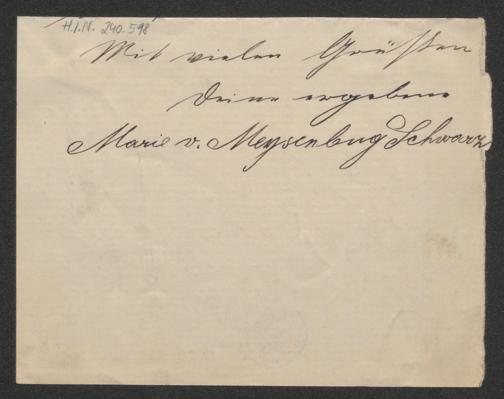 H.I.N. 240.598
Mit vielen Grüßen
Deine ergebene
Marie v. Meysenbug Schwarz